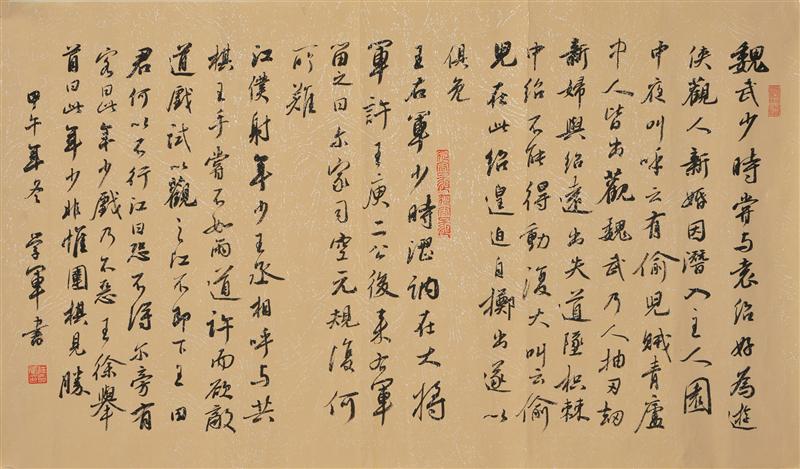 魏武少時嘗与袁绍好為遊
俠觀人新婚因潛入主人園
中夜叫呼云有偷兒贼青廬
中人皆出觀魏武乃人抽刃劫
新婦與绍還出失道墜枳棘
中绍不能得動復大叫云偷
兒在此绍遑迫自擲出遂以
俱免
王右軍少時澀訥在大将
軍許王庾二公後来右軍
留之曰尔家司空元規復何
所難
江僕射年少王丞相呼与共
棋王手嘗不如兩道許而欲敵
道戲試以觀之江不即下王曰
君何以不行江曰恐不得尔旁有
客曰此年少戲乃不惡王徐舉
首曰此年少非惟圍棋見勝
甲午年冬 学軍書